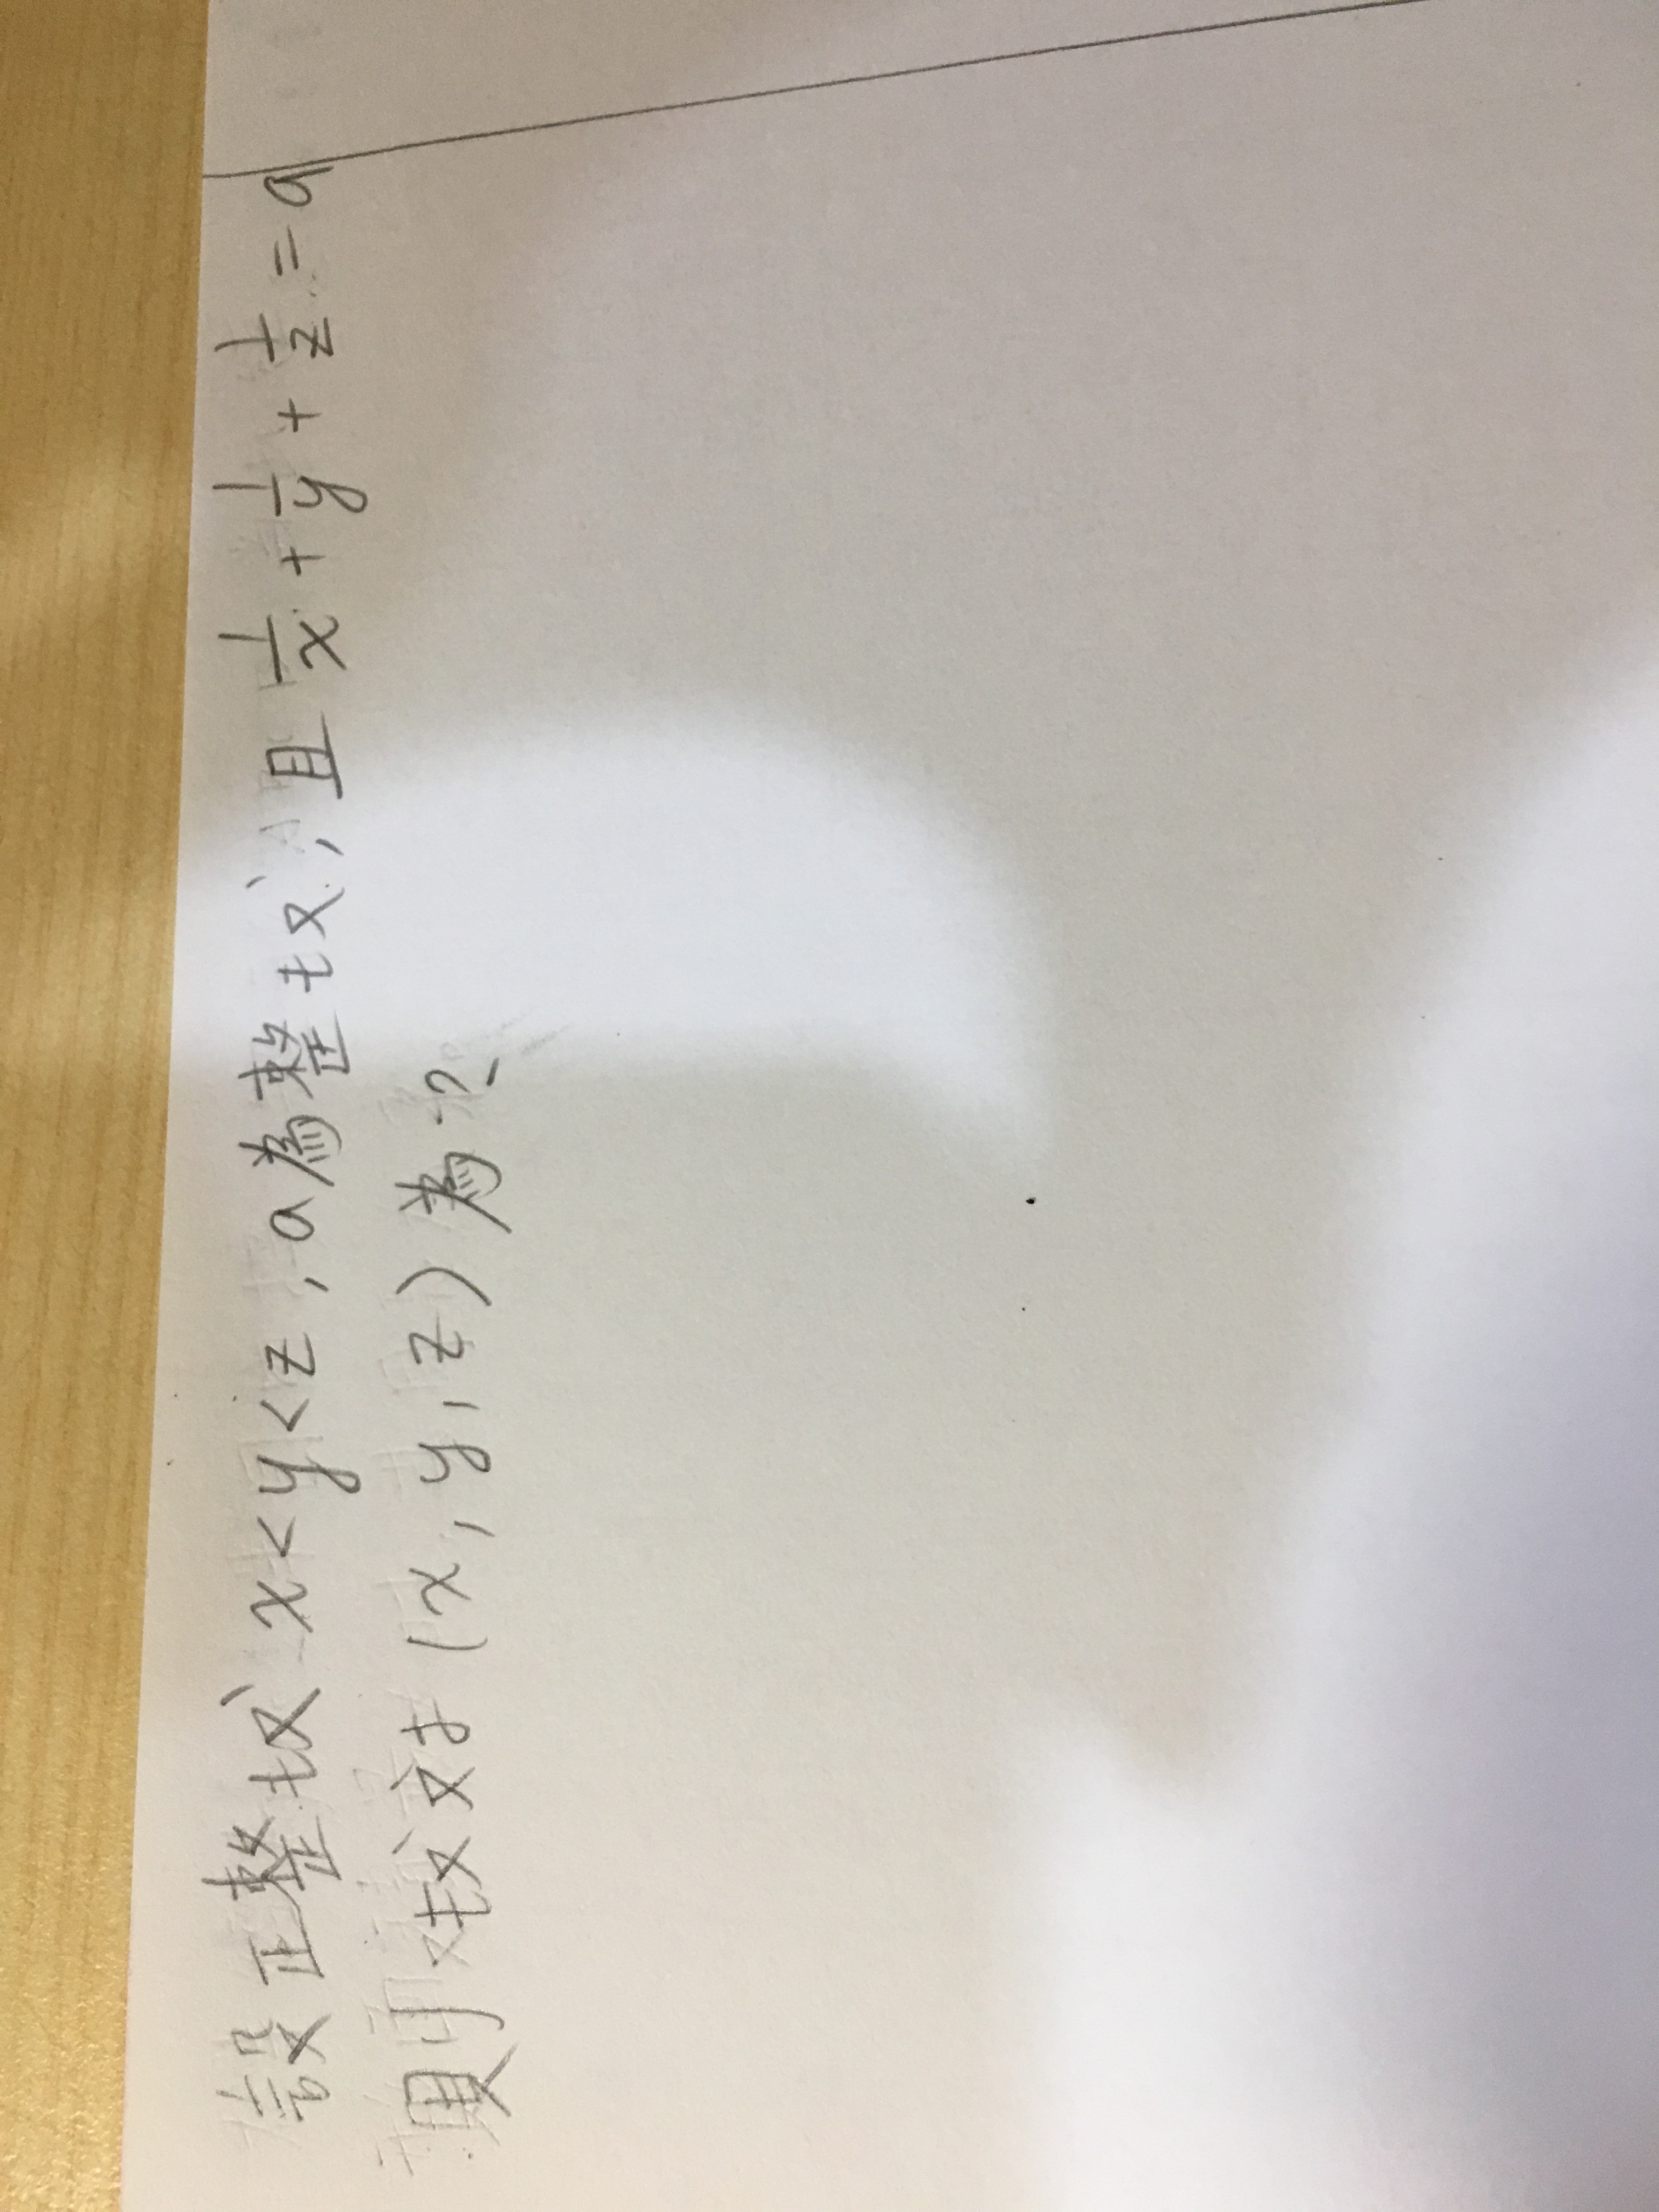 設正整数 x<y<z, a為整数, 且 1/x + 1/y + 1/z = a
則数対 (x, y, z) 為?